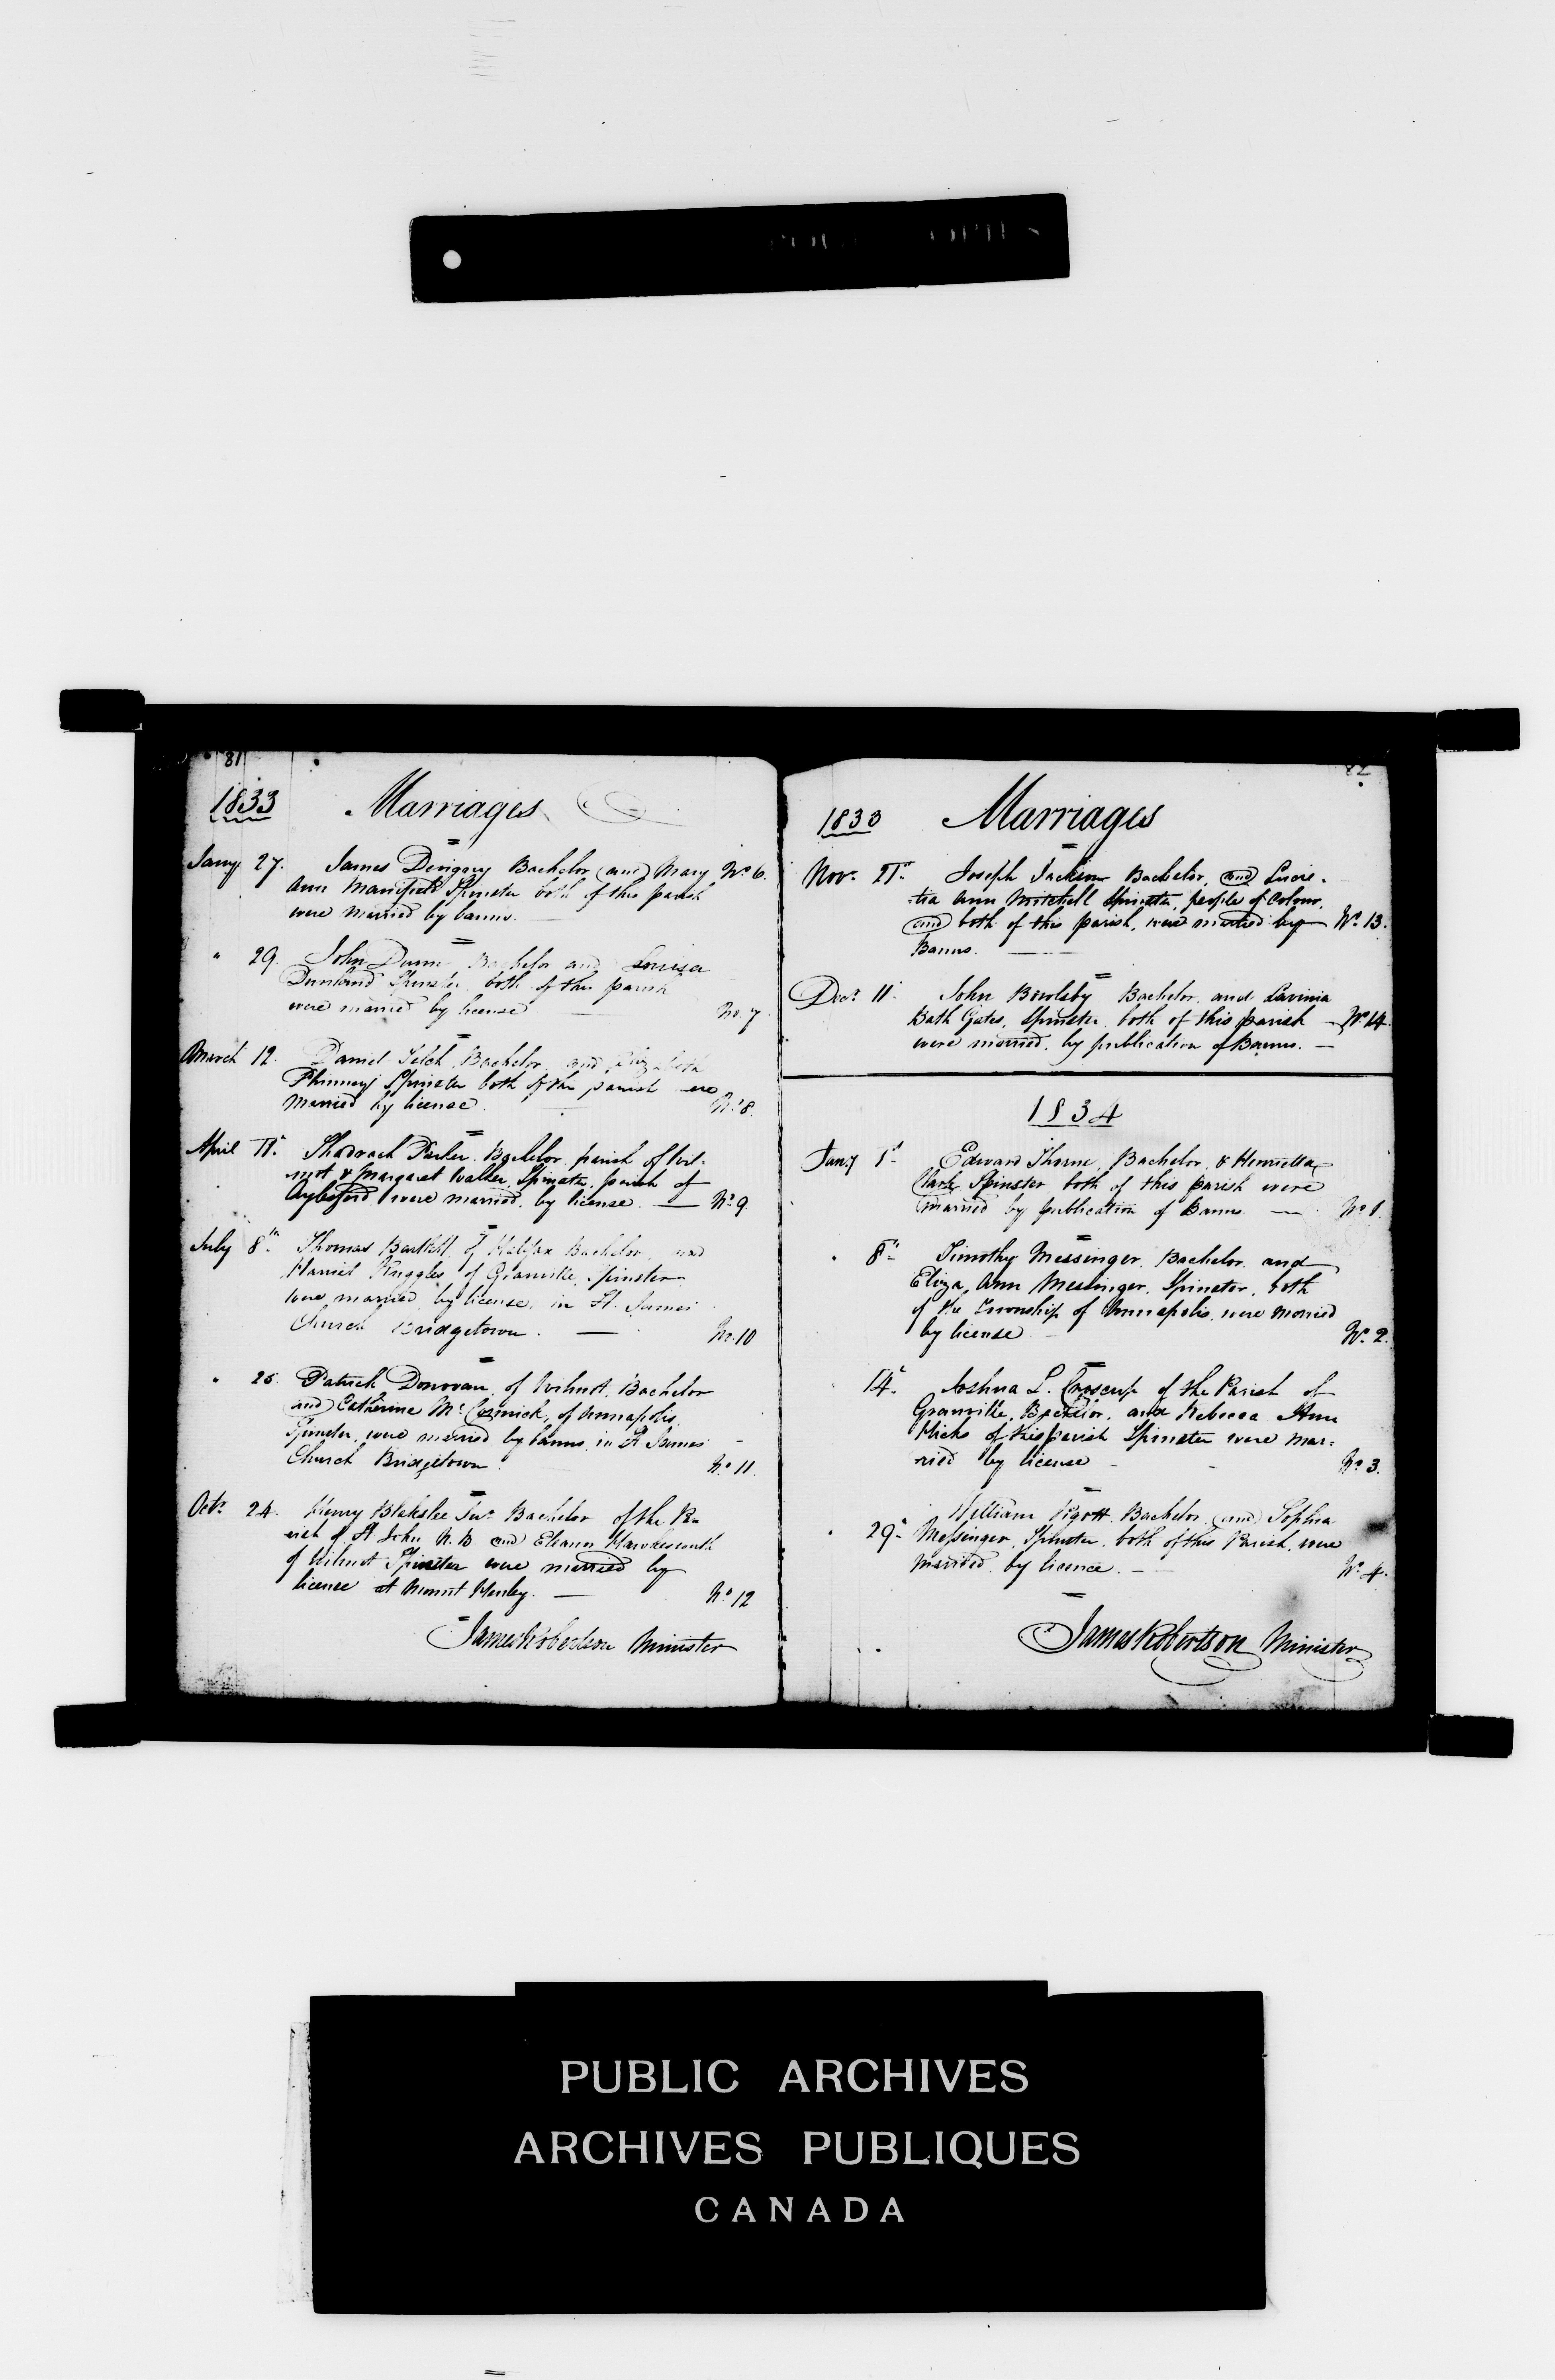 81
1833 Marriages
Jany 27. James Bachelor and Mary No 6.
Ann Spinster both of this parish
were married by banns.
" 29. John Dunn Bachelor and Louisa
Spinster both of this parish
were married by license No. 7
March 12. Daniel Bachelor and Elizabeth
Phinney Spinster both of the parish were
married by license. No. 8.
April 11. Shadrach Parker. Bachelor parish of Wil-
mot & Margaret Walker Spinster, parish of
Aylesford were married, by license. No. 9.
July 8th. Thomas of Halifax Bachelor, and
Harriet Ruggles of Granville Spinster
were married by license, in St. James
Church Bridgetown. No. 10
" Patrick Donovan of Wilmot, Bachelor
and Catherine Mc Cormick, of Annapolis,
Spinster, were married by banns, in St James
Church Bridgetown No. 11.
Octr 24. Henry Blakslee Junr Bachelor of the Pa-
rish of St John N. B and Eleanor
of Wilmot Spinster were married by
license at Mount Henley. No 12
James Robertson Minister
82
1833 Marriages
Novr 21st. Joseph Jackson Bachelor, and Lucre-
tia Ann Mitchell Spinster, people of Colour,
and both of this parish, were married by No 13.
Banns.
Decr 11. John Bowlsby Bachelor. and Lavinia
Bath Gates, Spinster both of this parish No 14.
were married, by publication of Banns.
1834
Jany 1st Edward Thorne, Bachelor, & Henrietta
Clark Spinster both of this parish were
married by publication of Banns No 1.
" 8th Timothy Messinger, Bachelor and
Eliza Ann Messinger, Spinster, both
of the Township of Annapolis, were married
by license No. 2.
14th. Joshua L. Croscup of the Parish of
Granville, Bachelor, and Rebecca Ann
Hicks of this parish Spinster were mar-
ried by license No 3.
William Pigott Bachelor and Sophia
" 29th Messinger, Spinster. both of this Parish, were
married. by licence. No 4.
James Robertson Minister
PUBLIC ARCHIVES
ARCHIVES PUBLIQUES
CANADA